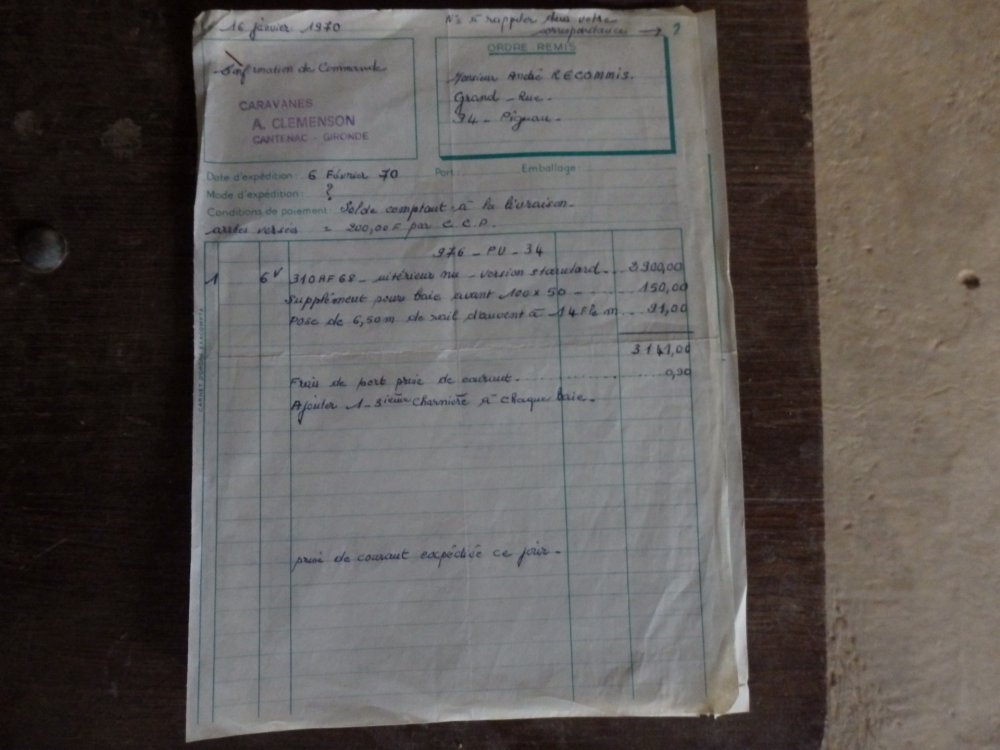 16 janvier 1970
N° à rappeler dans votre
correspondance → ?
Confirmation de Commande
CARAVANES
A. CLEMENSON
CANTENAC - GIRONDE
ORDRE REMIS
Monsieur André RECOMMIS.
Grand - Rue -
34 - Pignan -
Date d'expédition : 6 Février 70 Port : Emballage :
Mode d'expédition : ?
Conditions de paiement : Solde comptant à la livraison -
arrhes versées = 200,00 F par C.C.P.
976 - PU - 34
1 6V 310 HF 68 - intérieur nu - version standard... 2900,00
Supplément pour baie avant 100 x 50 - ...... 150,00
Pose de 6,50 m de rail d'auvent à 14 F le m... 91,00
3141,00
Frais de port prise de courant. ........... 0,90
Ajouter 1 - 3ième charnière à chaque baie -
prise de courant expédiée ce jour -